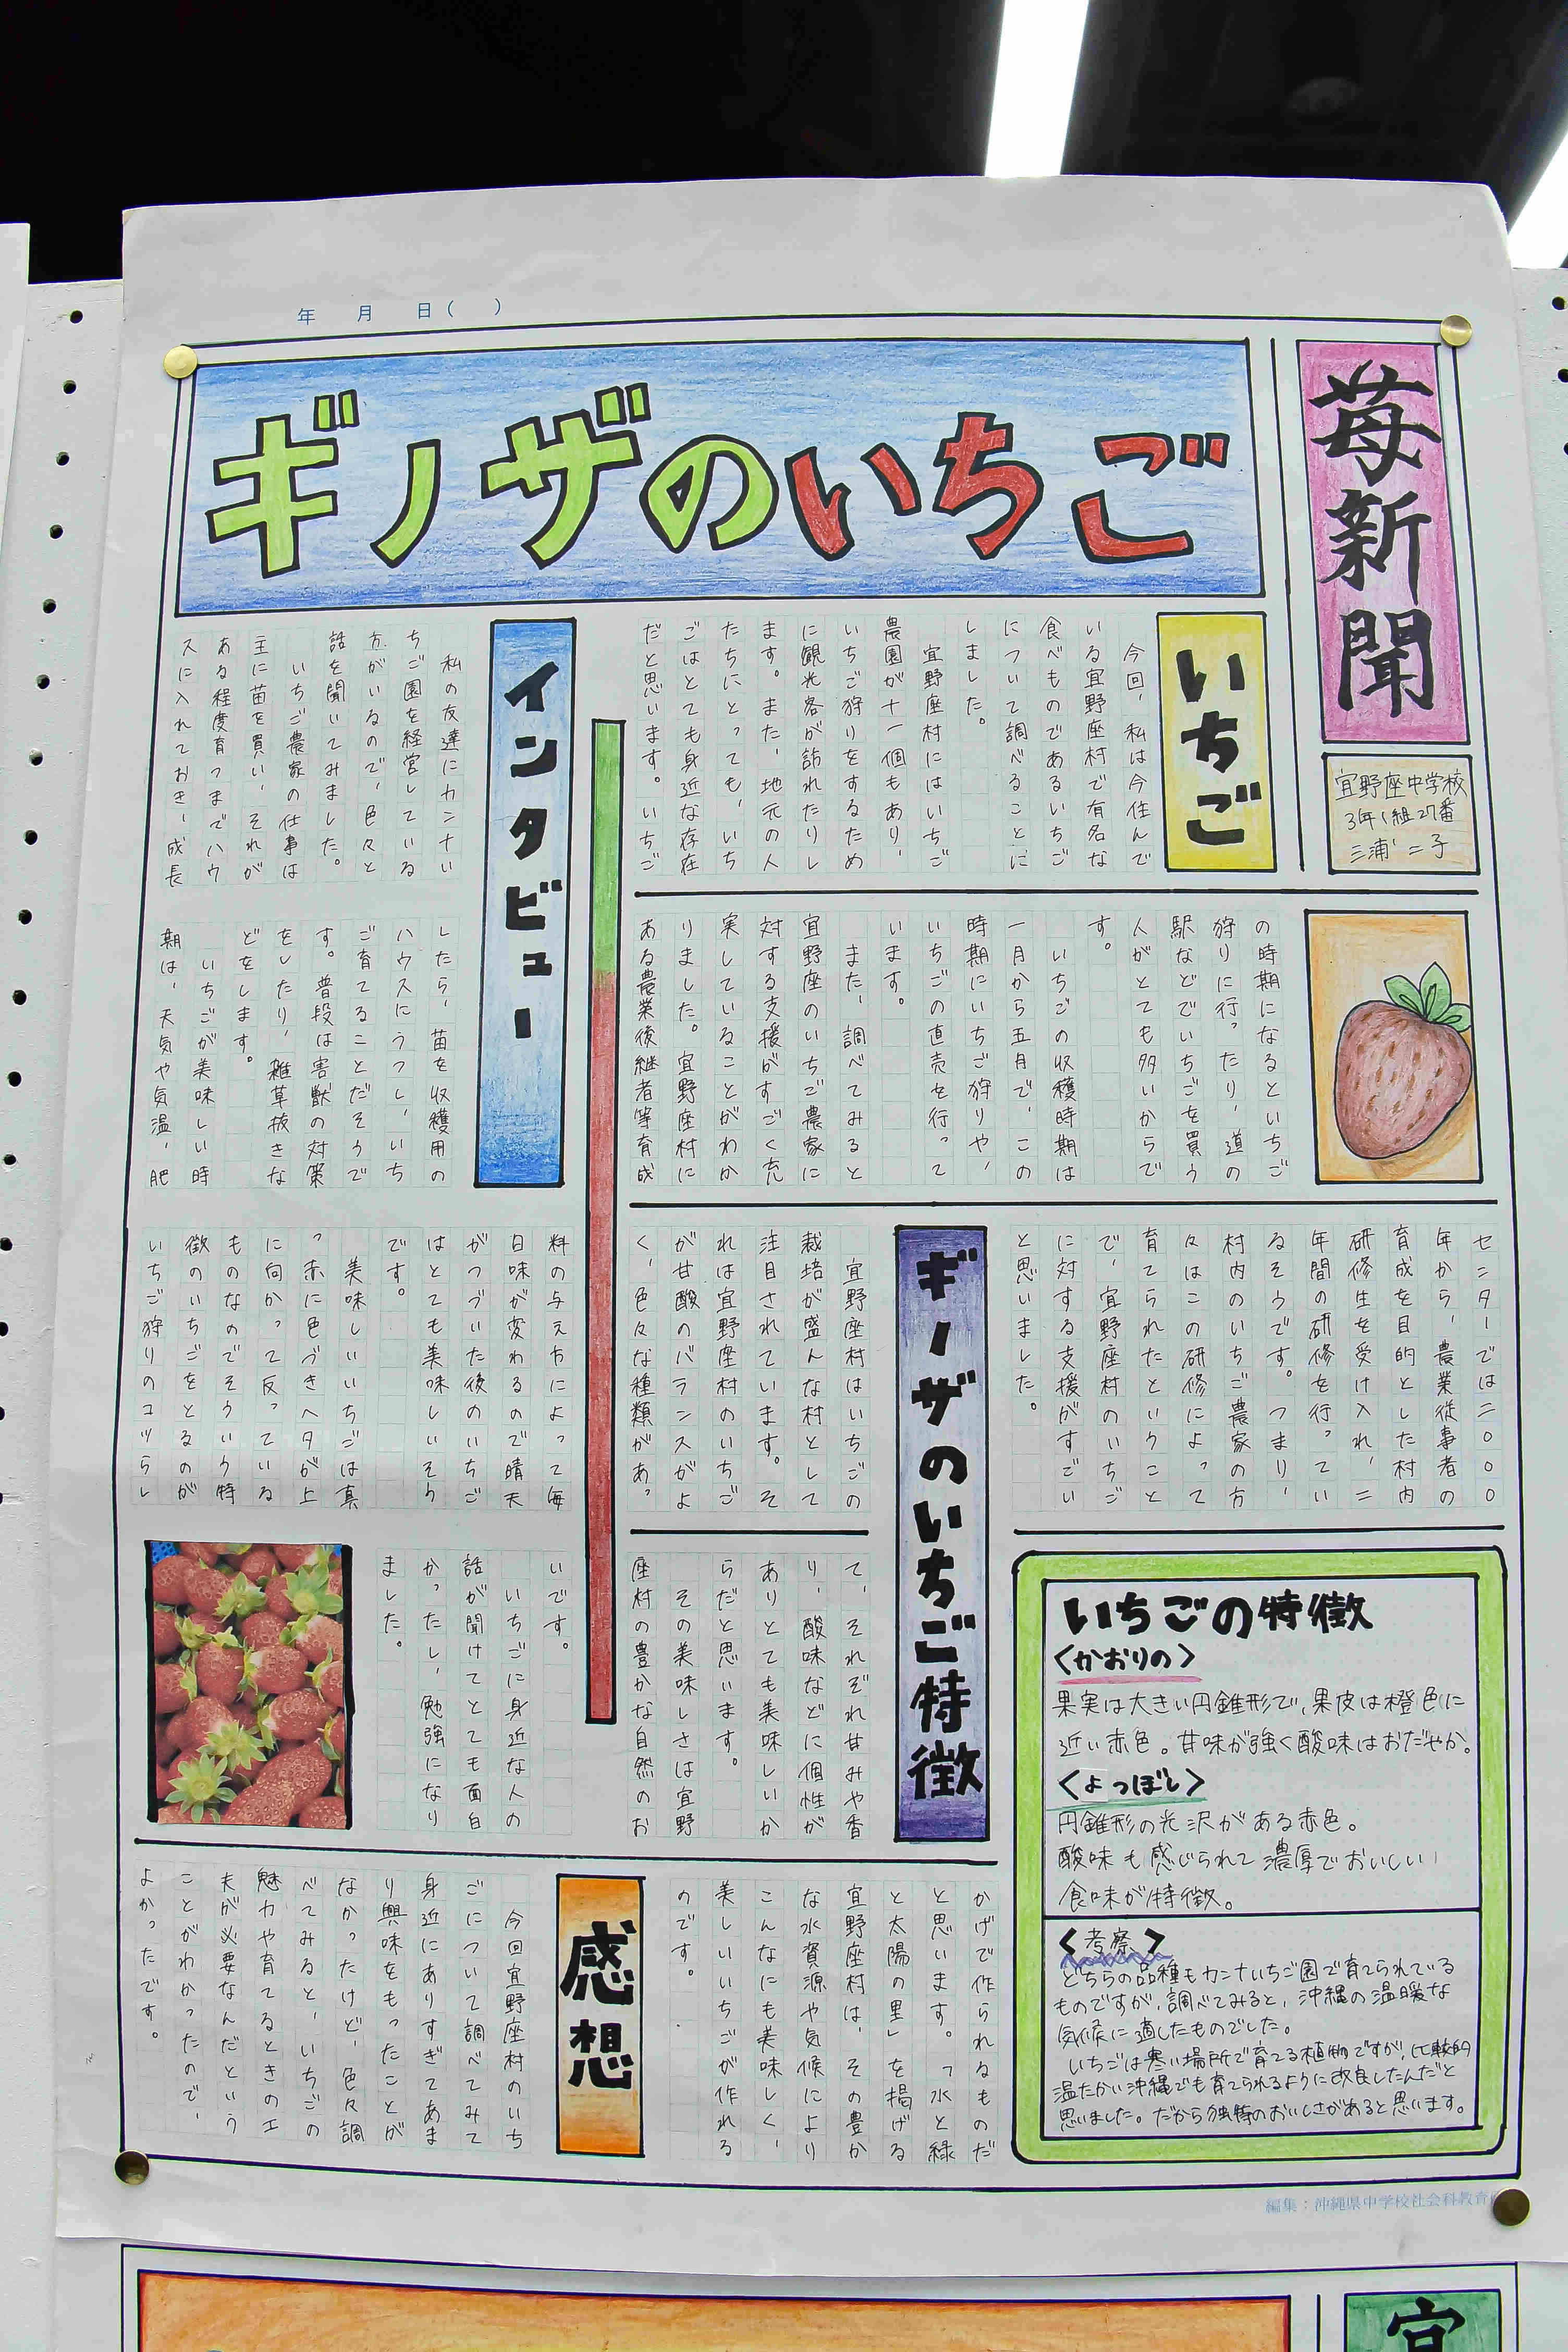 年 月 日( )
苺新聞
ギノザのいちご
宜野座中学校
3年1組27番
三浦 二子
いちご
今回、私は今住んで
いる宜野座村で有名な
食べものであるいちご
について調べることに
しました。
宜野座村にはいちご
農園が十一個もあり、
いちご狩りをするため
に観光客が訪れたりし
ます。また、地元の人
たちにとっても、いち
ごはとても身近な存在
だと思います。いちご
の時期になるといちご
狩りに行ったり、道の
駅などでいちごを買う
人がとても多いからで
す。
いちごの収穫時期は
一月から五月で、この
時期にいちご狩りや、
いちごの直売を行って
います。
また、調べてみると
宜野座のいちご農家に
対する支援がすごく充
実していることがわか
りました。宜野座村に
ある農業後継者等育成
センターでは二〇〇〇
年から、農業従事者の
育成を目的とした村内
研修生を受け入れ、二
年間の研修を行ってい
るそうです。つまり、
村内のいちご農家の方
々はこの研修によって
育てられたということ
で、宜野座村のいちご
に対する支援がすごい
と思いました。
ギノザのいちご特徴
宜野座村はいちごの
栽培が盛んな村として
注目されています。そ
れは宜野座村のいちご
が甘酸のバランスがよ
く、色々な種類があっ
て、それぞれ甘みや香
り、酸味などに個性が
ありとても美味しいか
らだと思います。
その美味しさは宜野
座村の豊かな自然のお
かげで作られるものだ
と思います。「水と緑
と太陽の里」を掲げる
宜野座村は、その豊か
な水資源や気候により
こんなにも美味しく、
美しいいちごが作れる
のです。
いちごの特徴
<かおりの>
果実は大きい円錐形で、果皮は橙色に
近い赤色。甘味が強く酸味はおだやか。
<よつぼし>
円錐形の光沢がある赤色。
酸味も感じられて濃厚でおいしい
食味が特徴。
<考察>
どちらの品種もカンナいちご園で育てられている
ものですが、調べてみると、沖縄の温暖な
気候に適したものでした。
いちごは寒い場所で育てる植物ですが、比較的
温たかい沖縄でも育てられるように改良したんだと
思いました。だから独特のおいしさがあると思います。
インタビュー
私の友達にカンナい
ちご園を経営している
方がいるので、色々と
話を聞いてみました。
いちご農家の仕事は
主に苗を買い、それが
ある程度育つまでハウ
スに入れておき、成長
したら、苗を収穫用の
ハウスにうつし、いち
ご育てることだそうで
す。普段は害獣の対策
をしたり、雑草抜きな
どをします。
いちごが美味しい時
期は、天気や気温、肥
料の与え方によって毎
日味が変わるので晴天
がつづいた後のいちご
はとても美味しいそう
です。
美味しいいちごは真
っ赤に色づきヘタが上
に向かって反っている
ものなのでそういう特
徴のいちごをとるのが
いちご狩りのコツらし
いです。
いちごに身近な人の
話が聞けてとても面白
かったし、勉強になり
ました。
感想
今回宜野座村のいち
ごについて調べてみて
身近にありすぎてあま
り興味をもったことが
なかったけど、色々調
べてみると、いちごの
魅力や育てるときの工
夫が必要なんだという
ことがわかったので、
よかったです。
編集：沖縄県中学校社会科教育